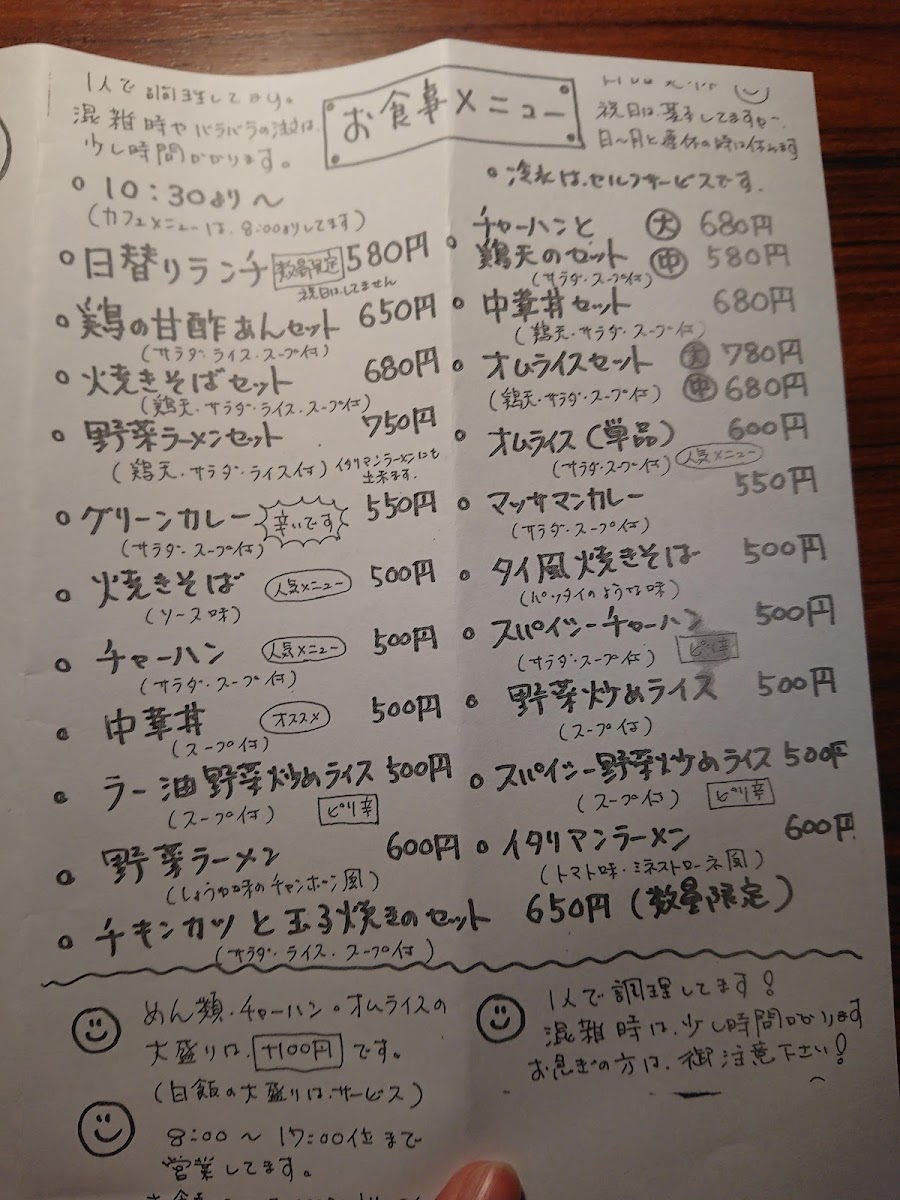 お食事メニュー
1人で調理してます。
混雑時やバラバラの注文は、
少し時間かかります。
祝日は、基本してますが、
日〜月と連休の時は休みます
10:30より〜
(カフェメニューは、8:00よりしてます)
日替りランチ 数量限定 580円
祝日はしてません
鶏の甘酢あんセット 650円
(サラダ・ライス・スープ付)
焼きそばセット 680円
(鶏天・サラダ・ライス・スープ付)
野菜ラーメンセット 750円
(鶏天・サラダ・ライス付) イタリアンラーメンにも
出来ます。
グリーンカレー 辛いです 550円
(サラダ・スープ付)
焼きそば 人気メニュー 500円
(ソース味)
チャーハン 人気メニュー 500円
(サラダ・スープ付)
中華丼 オススメ 500円
(スープ付)
ラー油野菜炒めライス 500円
(スープ付) ピリ辛
野菜ラーメン 600円
(しょうゆ味のチャンポン風)
冷水は、セルフサービスです。
チャーハンと 大 680円
鶏天のセット 中 580円
(サラダ・スープ付)
中華丼セット 680円
(鶏天・サラダ・スープ付)
オムライスセット 大 780円
(鶏天・サラダ・スープ付) 中 680円
オムライス(単品) 600円
(サラダ・スープ付) 人気メニュー
マッサマンカレー 550円
(サラダ・スープ付)
タイ風焼きそば 500円
(パッタイのような味)
スパイシーチャーハン 500円
(サラダ・スープ付) ピリ辛
野菜炒めライス 500円
(スープ付)
スパイシー野菜炒めライス 500円
(スープ付) ピリ辛
イタリアンラーメン 600円
(トマト味・ミネストローネ風)
チキンカツと玉子焼きのセット 650円(数量限定)
(サラダ・ライス・スープ付)
めん類・チャーハン・オムライスの
大盛りは、+100円です。
(白飯の大盛りは、サービス)
8:00〜17:00位まで
営業してます。
1人で調理してます!
混雑時は、少し時間かかります
お急ぎの方は、御注意下さい!